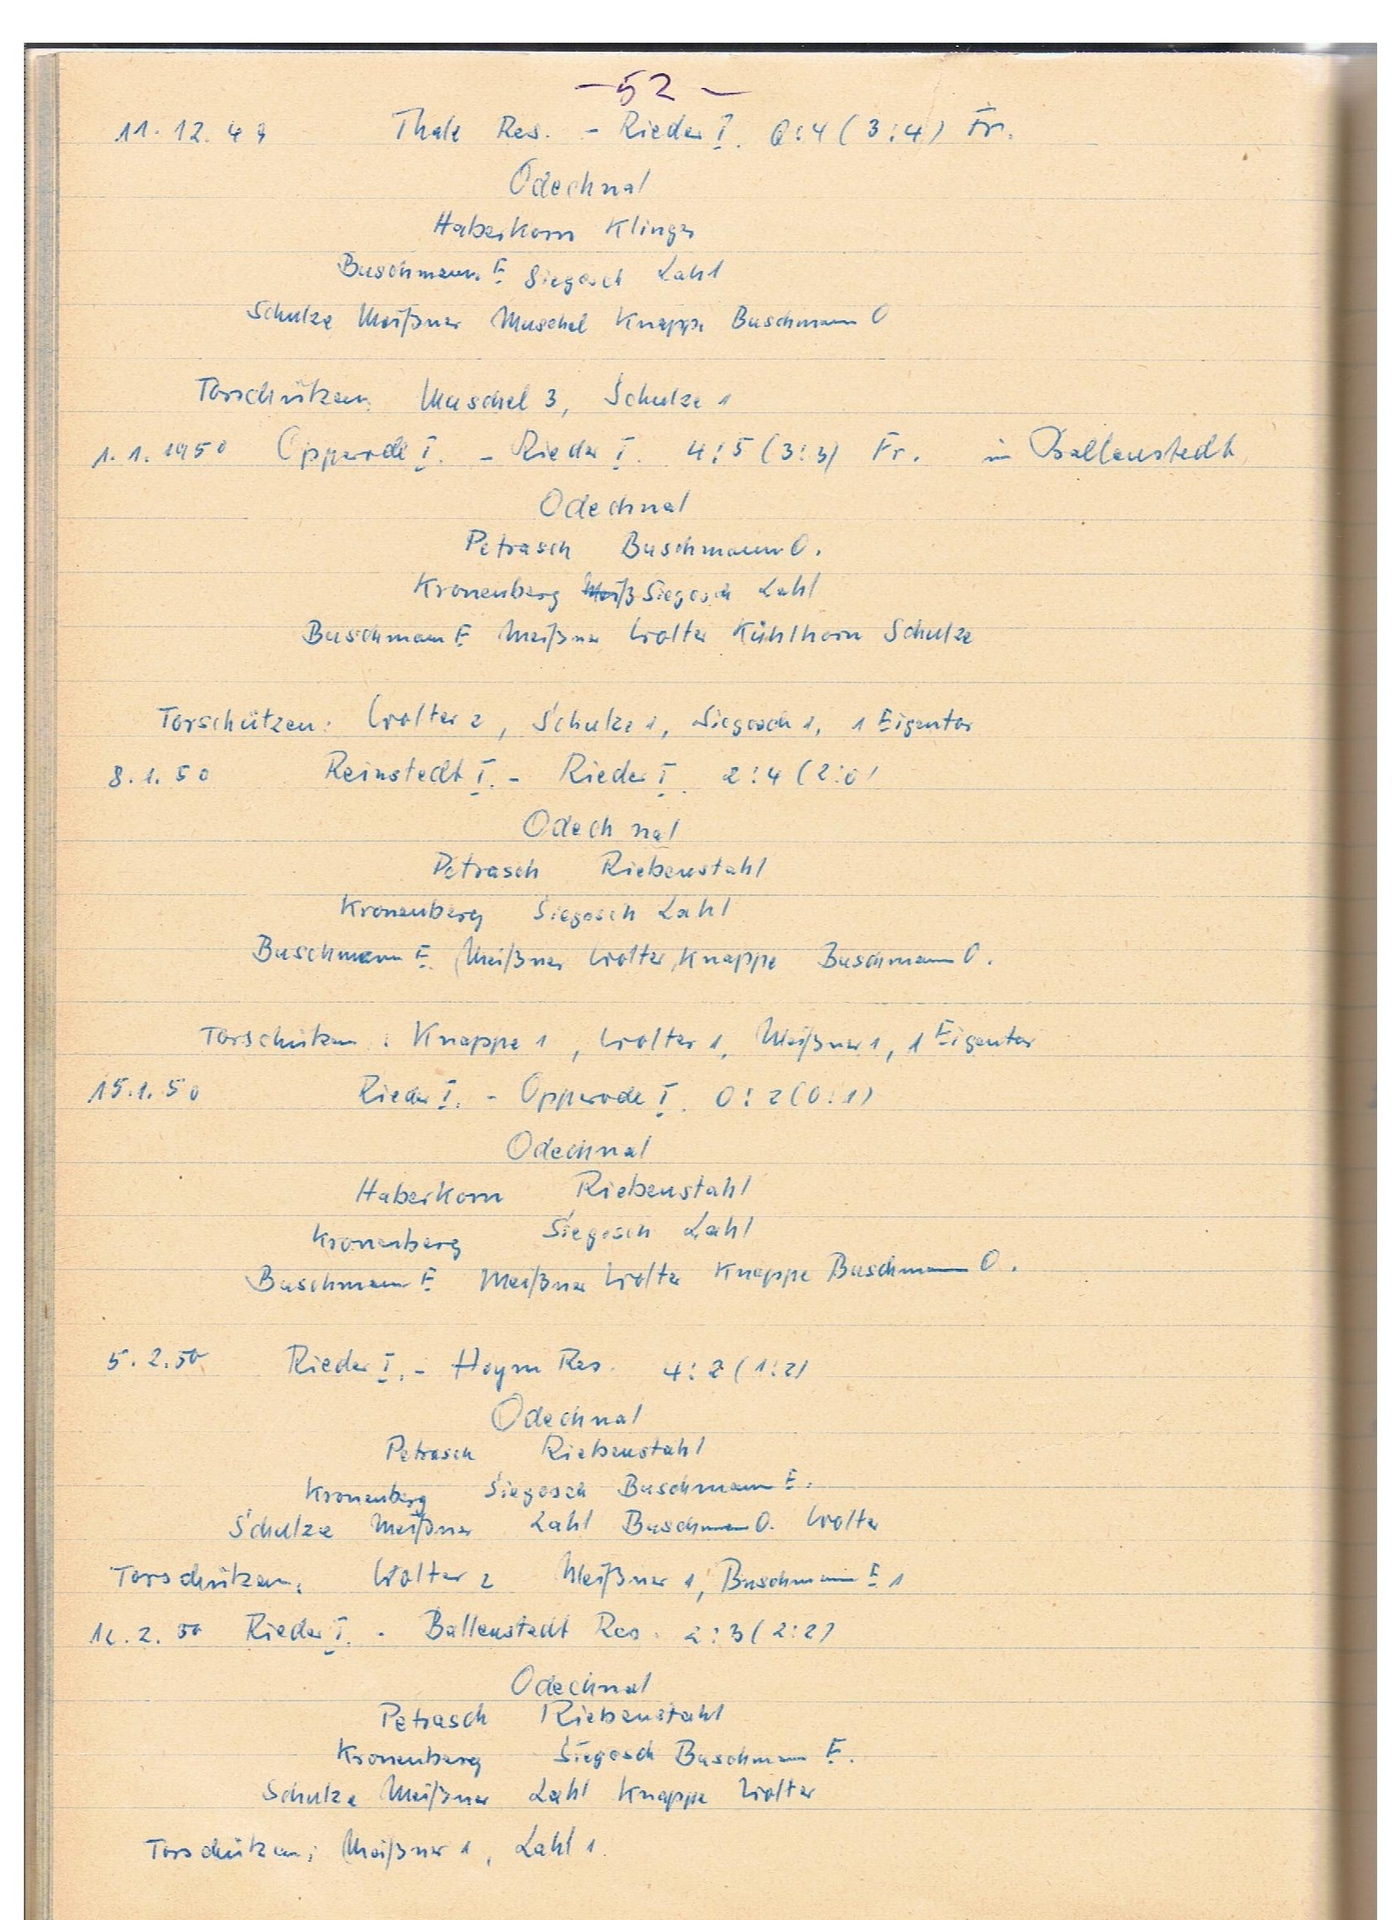 - 52 -
11. 12. 49 Thale Res. - Rieder I. 6:4 (3:4) Fr.
Odechnal
Haberkorn Klinger
Buschmann E Siegosch Lahl
Schulze Meißner Muschel Knappe Buschmann O
Torschützen: Muschel 3, Schulze 1
1. 1. 1950 Opperode I. - Rieder I. 4:5 (3:3) Fr. in Ballenstedt
Odechnal
Petrasch Buschmann O.
Kronenberg Meiß Siegosch Lahl
Buschmann E Meißner Wolter Kühlhorn Schulze
Torschützen: Wolter 2, Schulze 1, Siegosch 1, 1 Eigentor
8. 1. 50 Reinstedt I. - Rieder I. 2:4 (2:0)
Odechnal
Petrasch Riebenstahl
Kronenberg Siegosch Lahl
Buschmann E. Meißner Wolter Knappe Buschmann O.
Torschützen: Knappe 1, Wolter 1, Meißner 1, 1 Eigentor
15. 1. 50 Rieder I. - Opperode I. 0:2 (0:1)
Odechnal
Haberkorn Riebenstahl
Kronenberg Siegosch Lahl
Buschmann E Meißner Wolter Knappe Buschmann O.
5. 2. 50 Rieder I. - Hoym Res. 4:2 (1:2)
Odechnal
Petrasch Riebenstahl
Kronenberg Siegosch Buschmann E.
Schulze Meißner Lahl Buschmann O. Wolter
Torschützen: Wolter 2 Meißner 1, Buschmann E 1
12. 2. 50 Rieder I. - Ballenstedt Res. 2:3 (2:2)
Odechnal
Petrasch Riebenstahl
Kronenberg Siegosch Buschmann E.
Schulze Meißner Lahl Knappe Wolter
Torschützen: Meißner 1, Lahl 1.